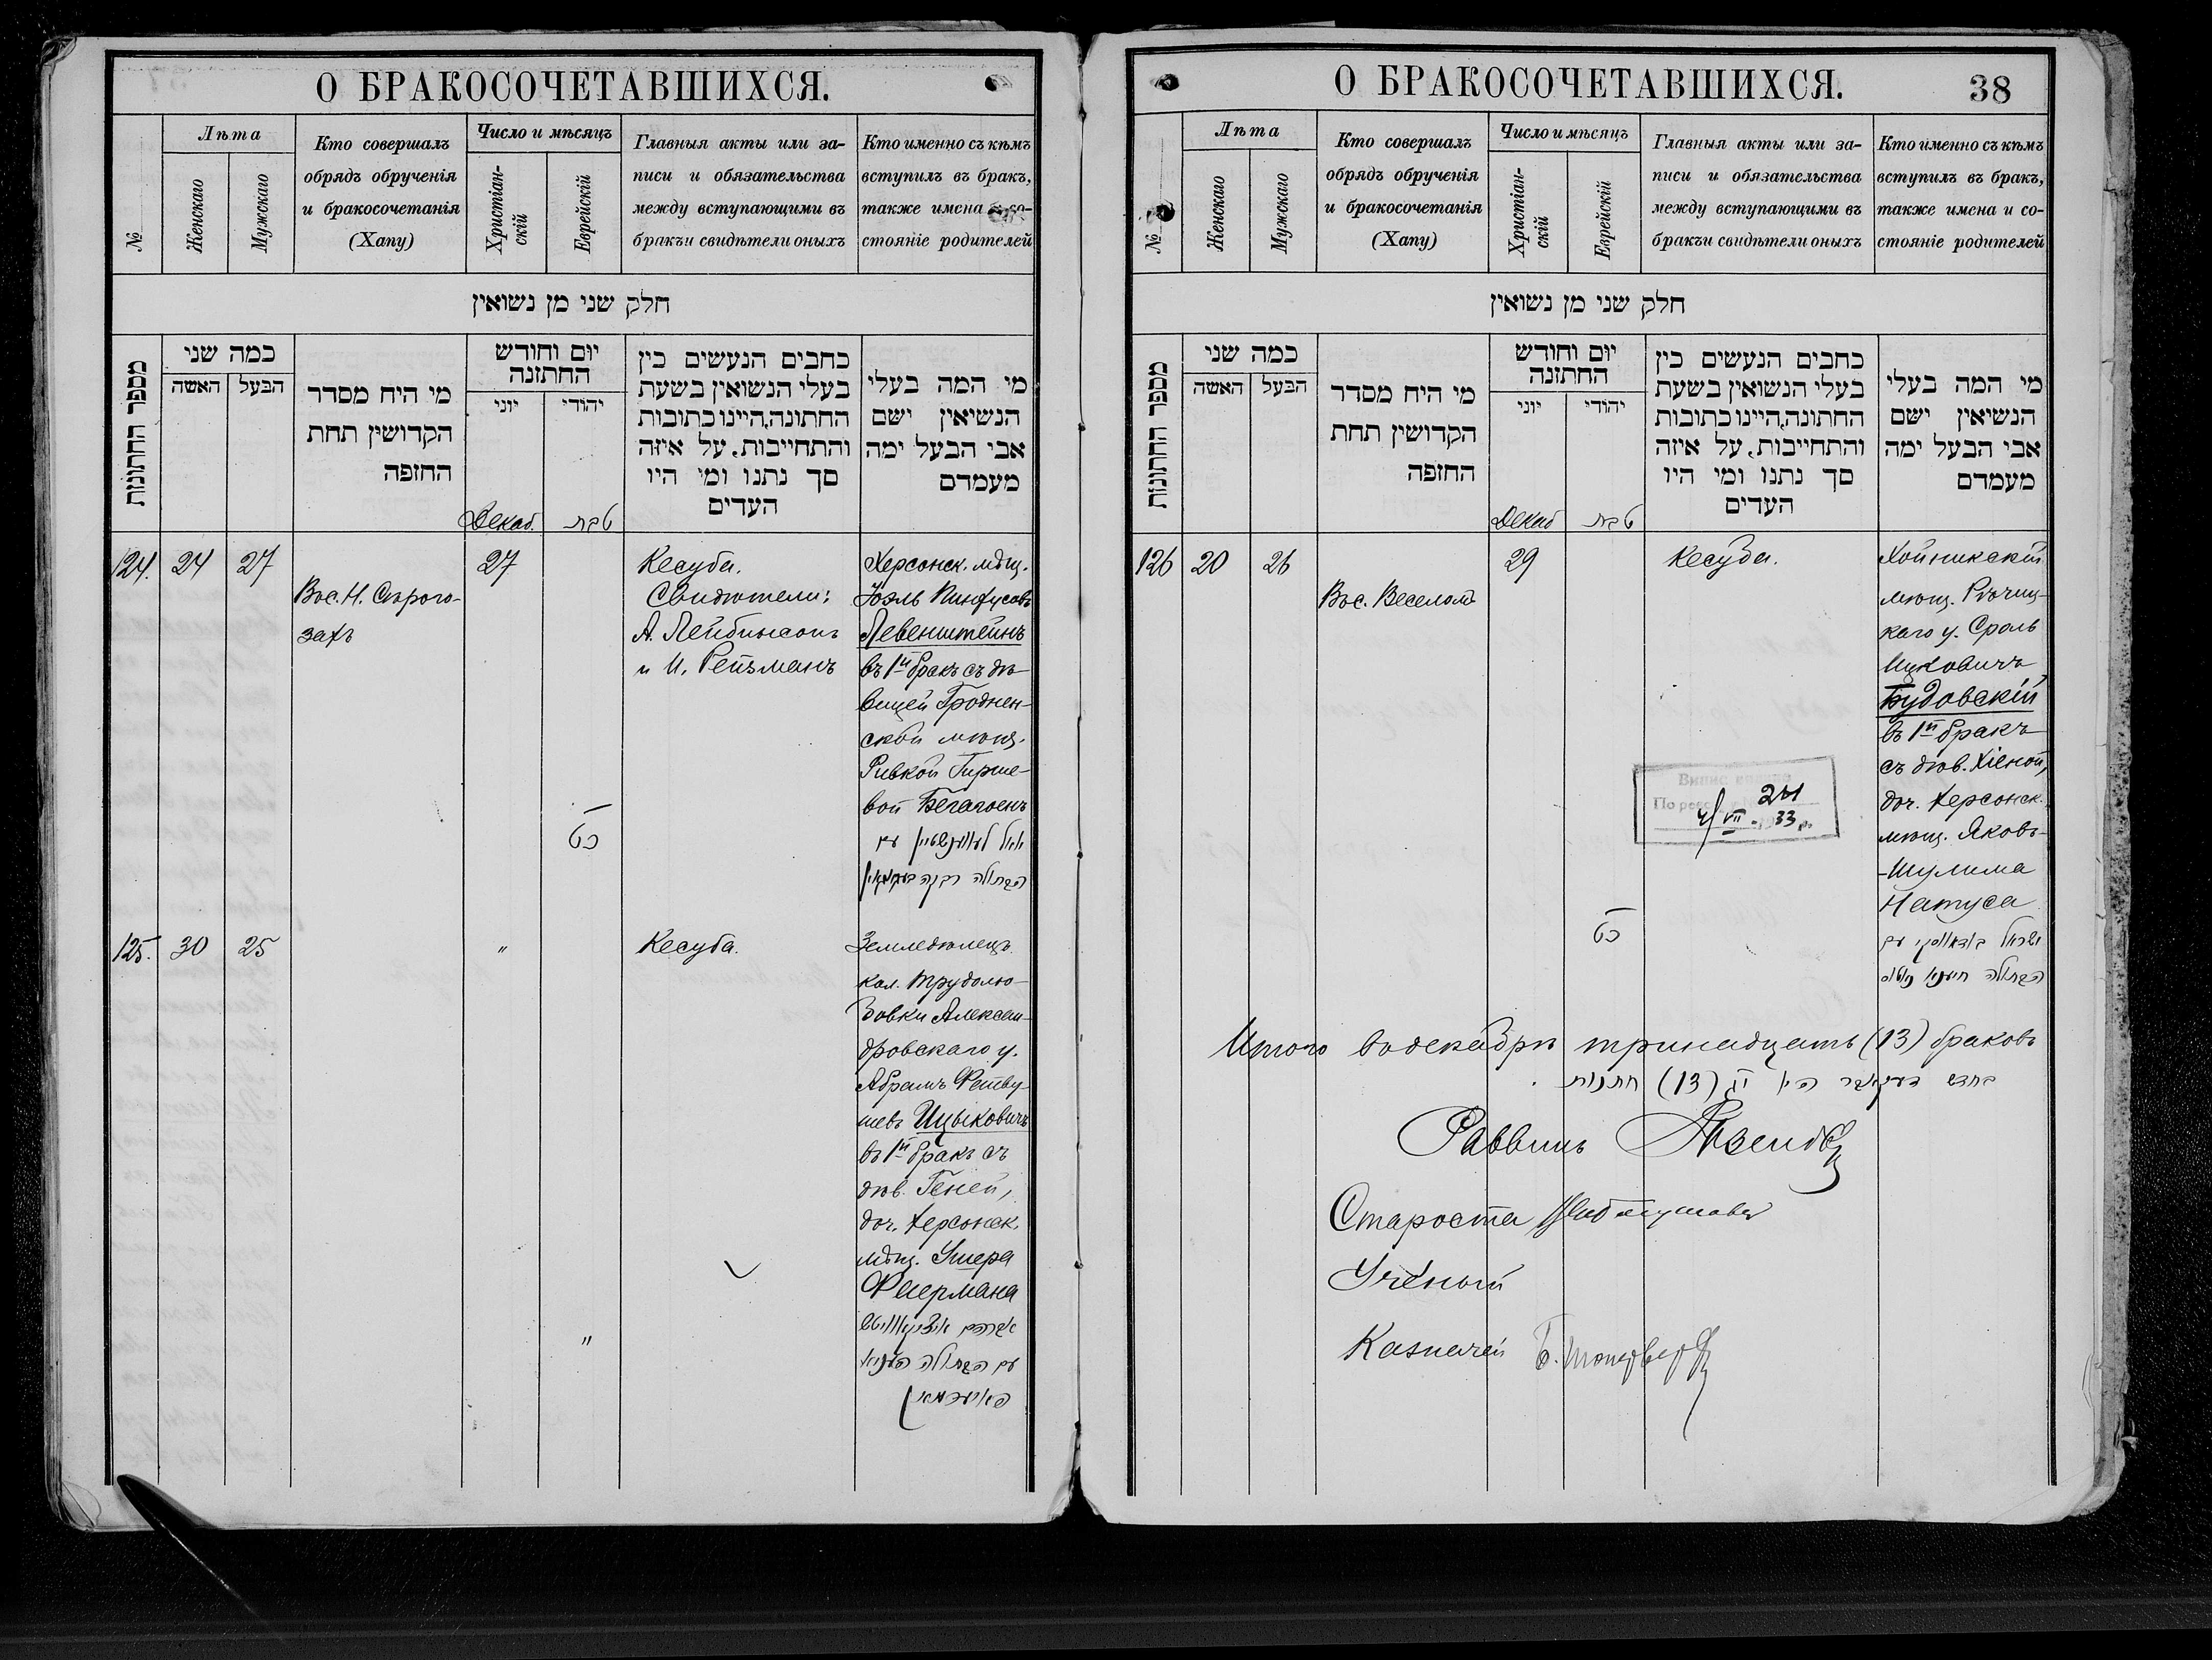 О БРАКОСОЧЕТАВШИХСЯ.
№
Лѣта
Женскаго
Мужскаго
Кто совершалъ
обрядъ обрученія
и бракосочетанія
(Хапу)
Число и мѣсяцъ
Христіан-
скій
Еврейскій
Главныя акты или за-
писи и обязательства
между вступающими въ
бракъ и свидѣтели оныхъ
Кто именно съ кѣмъ
вступилъ въ бракъ,
также имена и со-
стояніе родителей
חלק שני מן נשואין
מספר החתונות
כמה שני
האשה
הבעל
מי היח מסדר
הקדושין תחת
החזפה
יום וחודש
החתזנה
יוני
יהודי
כחבים הנעשים כין
בעלי הנשואין בשעת
החתונה,היינו כתובות
והתחייבות, על איזה
סך נתנו ומי היו
העדים
מי המה בעלי
הנשיאין ישם
אבי הבעל ימה
מעמדם
Декаб.
טבת
124.
24
27
Вос. Н. Скрого-
захъ
27
כט
Кесуба.
Свидѣтели:
А. Лейбинсонъ
и И. Рейзманъ
Херсонск. мѣщ.
Іоэль Пинхусовъ
Левенштейнъ
въ 1й бракъ съ дѣ-
вицей Гроднен-
ской мѣщ.
Ривкой Гирше-
вой
125.
30
25
"
"
Кесуба.
Земледѣлецъ
кол. Трудолю-
бовки Алексан-
дровскаго у.
Абрамъ
шевъ Ицыковичъ
въ 1й бракъ съ
дѣв. Геней,
доч. Херсонск.
мѣщ. Ушера
Фаермана
О БРАКОСОЧЕТАВШИХСЯ.
38
№
Лѣта
Женскаго
Мужскаго
Кто совершалъ
обрядъ обрученія
и бракосочетанія
(Хапу)
Число и мѣсяцъ
Христіан-
скій
Еврейскій
Главныя акты или за-
писи и обязательства
между вступающими въ
бракъ и свидѣтели оныхъ
Кто именно съ кѣмъ
вступилъ въ бракъ,
также имена и со-
стояніе родителей
חלק שני מן נשואין
מספר החתונות
כמה שני
האשה
הבעל
מי היח מסדר
הקדושין תחת
החזפה
יום וחודש
החתזנה
יוני
יהודי
כחבים הנעשים כין
בעלי הנשואין בשעת
החתונה,היינו כתובות
והתחייבות, על איזה
סך נתנו ומי היו
העדים
מי המה בעלי
הנשיאין ישם
אבי הבעל ימה
מעמדם
Декаб
טבת
126
20
26
Вос. Веселовъ
29
כט
Кесуба.
Хойникскій
мѣщ. Рѣчиц-
каго у. Сроль
Ицковичъ
Будовскій
въ 1й бракъ
съ дѣв. Хіеной,
доч. Херсонск.
мѣщ. Яковъ-
-Шулима
Натуса
Итого въ декабрѣ тринадцать (13) браковъ
בחדש דעקאבר היו יג (13) חתנות
Раввинъ
Староста
Ученый
Казначей